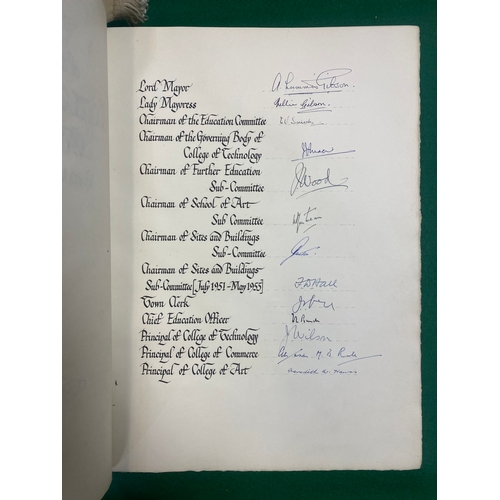 Lord Mayor
Lady Mayoress Gibson.
Chairman of the Education Committee
Chairman of the Governing Body of
College of Technology
Chairman of Further Education
Sub-Committee J Wood
Chairman of School of Art
Sub Committee
Chairman of Sites and Buildings
Sub-Committee
Chairman of Sites and Buildings
Sub-Committee [July 1951-May 1955] Hall
Town Clerk
Chief Education Officer
Principal of College of Technology J Wilson
Principal of College of Commerce
Principal of College of Art